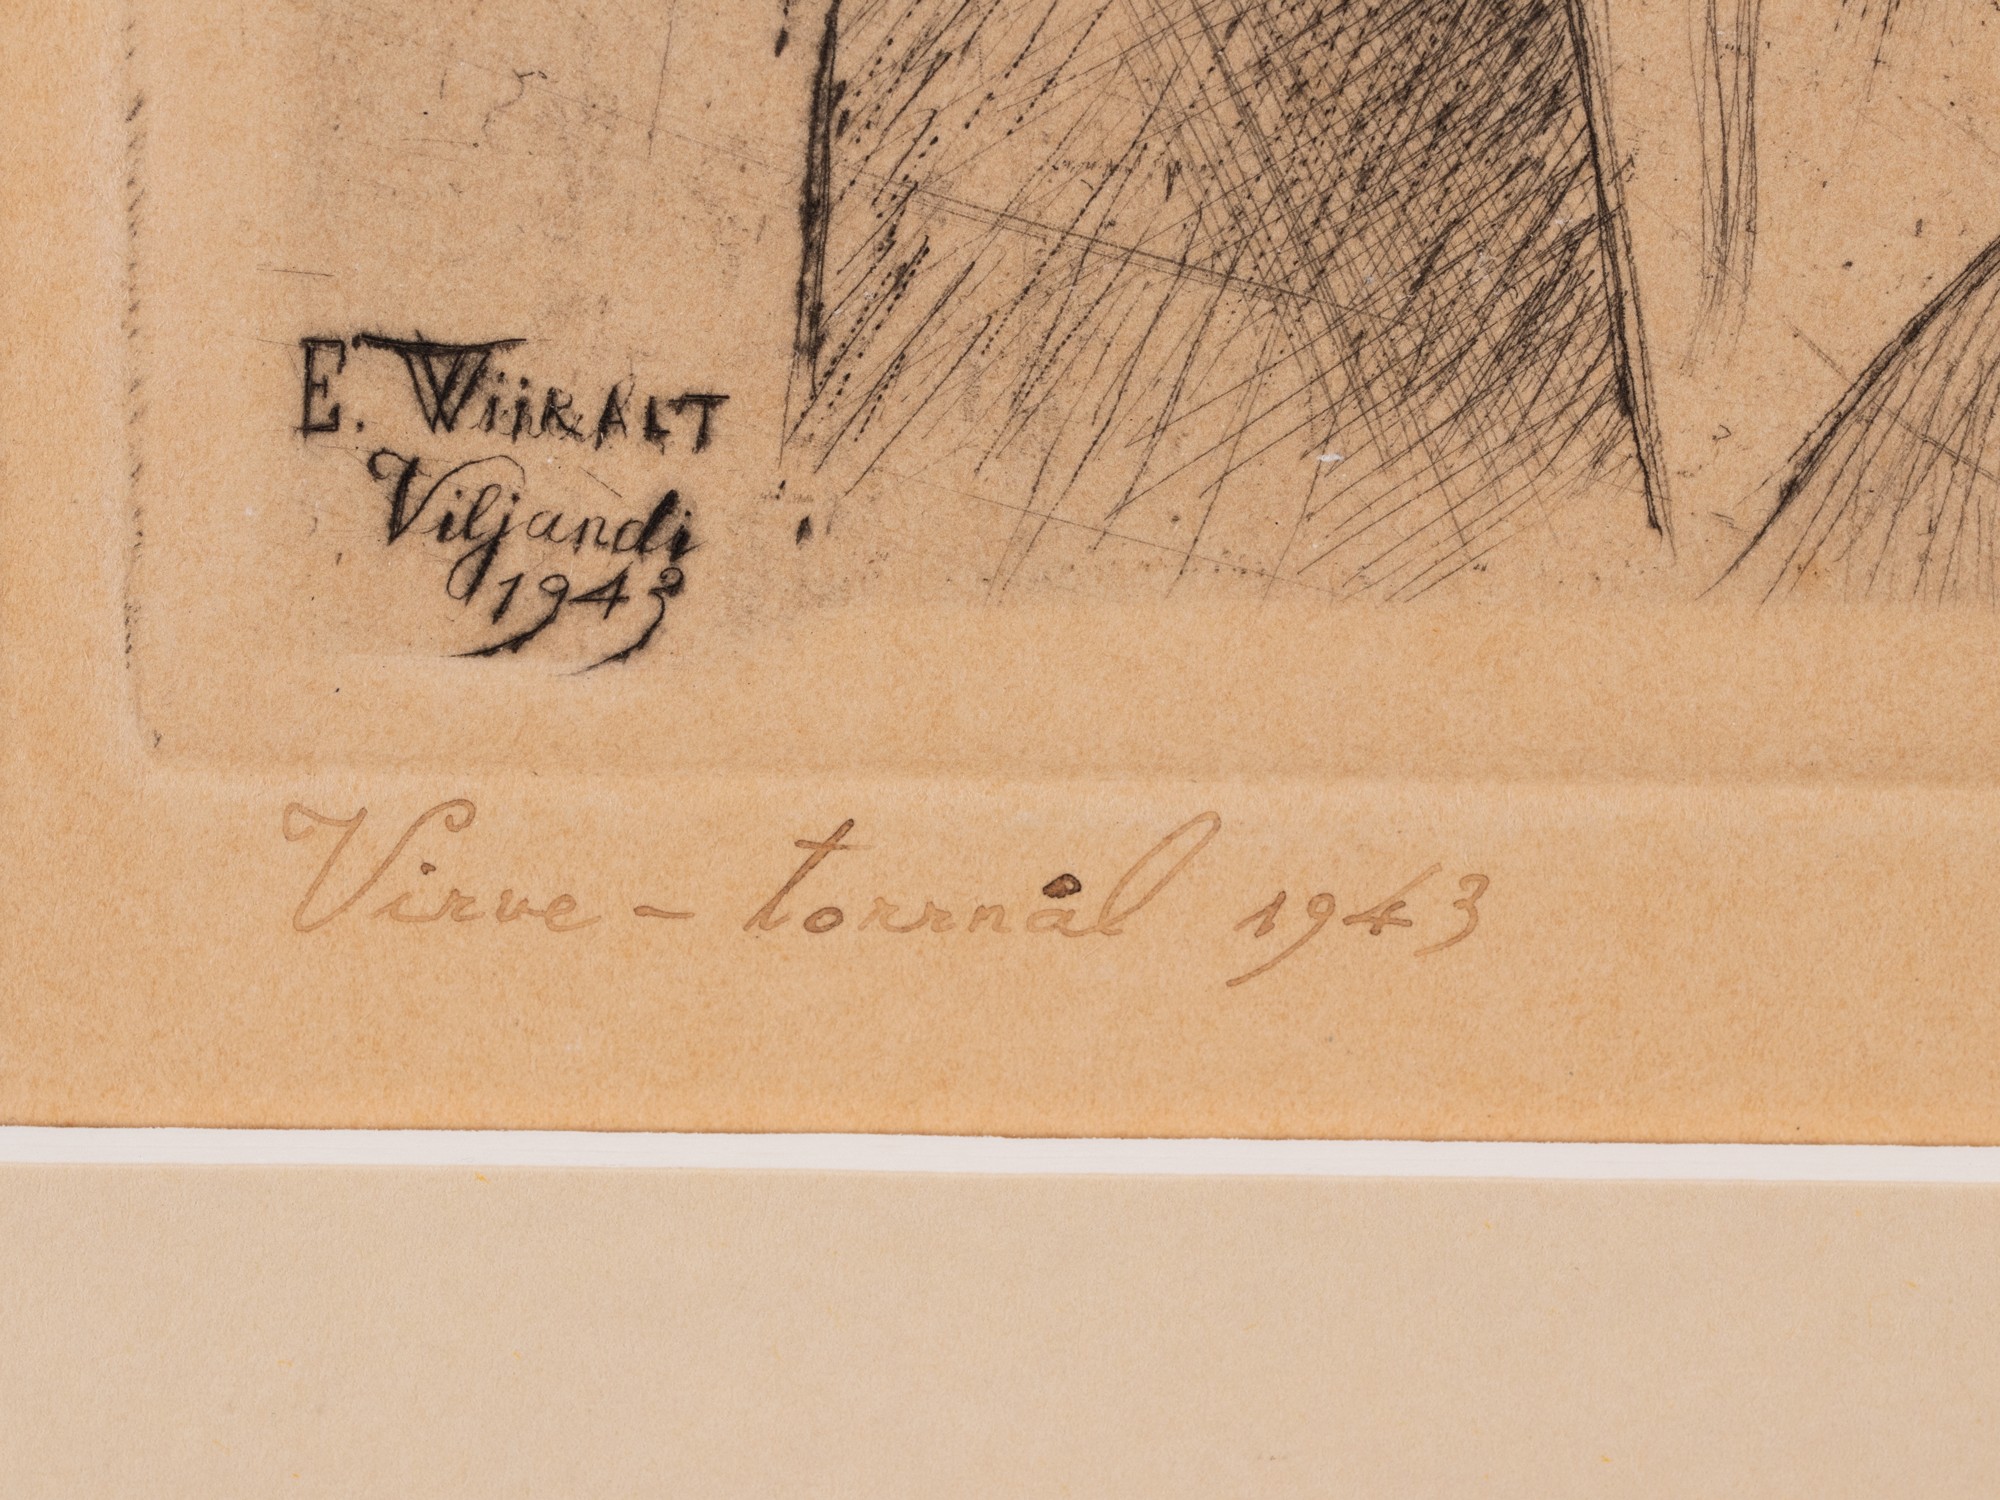 E. WiiRALT
Viljandi
1943
Virve – torrnål 1943